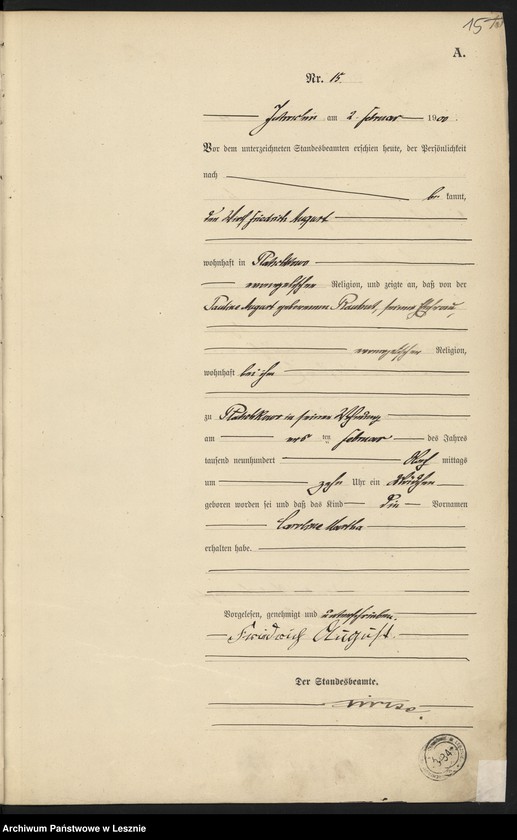 15
A.
Nr. 15.
am 2. Februar 1900.
Vor dem unterzeichneten Standesbeamten erschien heute, der Persönlichkeit
nach
be kannt,
Friedrich August
wohnhaft in
evangelischer Religion, und zeigte an, daß von der
Pauline August geborenen seiner Ehefrau,
evangelischer Religion,
wohnhaft bei ihm
zu in seiner Wohnung
am ersten Februar des Jahres
tausend neunhundert Nach mittags
um zehn Uhr ein Mädchen
geboren worden sei und daß das Kind die Vornamen
Martha
erhalten habe.
Vorgelesen, genehmigt und unterschrieben.
Friedrich August.
Der Standesbeamte.
Archiwum Państwowe w Lesznie